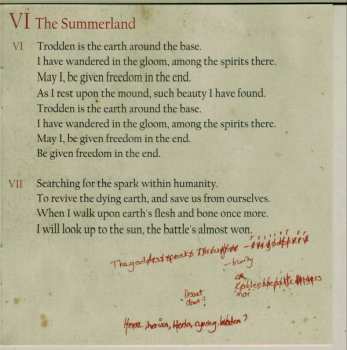 VI The Summerland
VI Trodden is the earth around the base.
I have wandered in the gloom, among the spirits there.
May I, be given freedom in the end.
As I rest upon the mound, such beauty I have found.
Trodden is the earth around the base.
I have wandered in the gloom, among the spirits there.
May I, be given freedom in the end.
Be given freedom in the end.
VII Searching for the spark within humanity.
To revive the dying earth, and save us from ourselves.
When I walk upon earth's flesh and bone once more.
I will look up to the sun, the battle's almost won.
The goddess speaks through
or